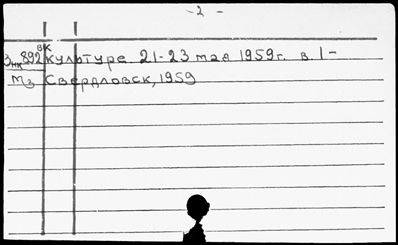 - 2 -
вк
Знк892 культуре 21-23 мая 1959г. в. 1-
м3 Свердловск, 1959